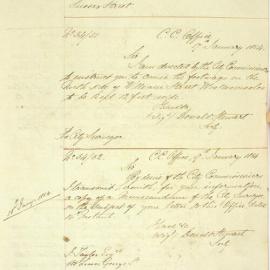 Sussex Street
No 54/51 C. C. Office
9th January 1854
Sir
I am directed by the City Commissioners
to instruct you to cause the footways on the
North side of William Street Woolloomooloo
to be kept 12 feet wide
I have &c
(Sigd) Donald Stewart
Secty
The City Surveyor
No 54/52 C. C. Office 9th January 1854
Sir
By desire of the City Commissioners
I transmit herewith for your information
a copy of a Memorandum of the City
on the subject of your letter to this Office dated
I have &c
(Sigd) Donald Stewart
Secty
J. Taylor Esqr